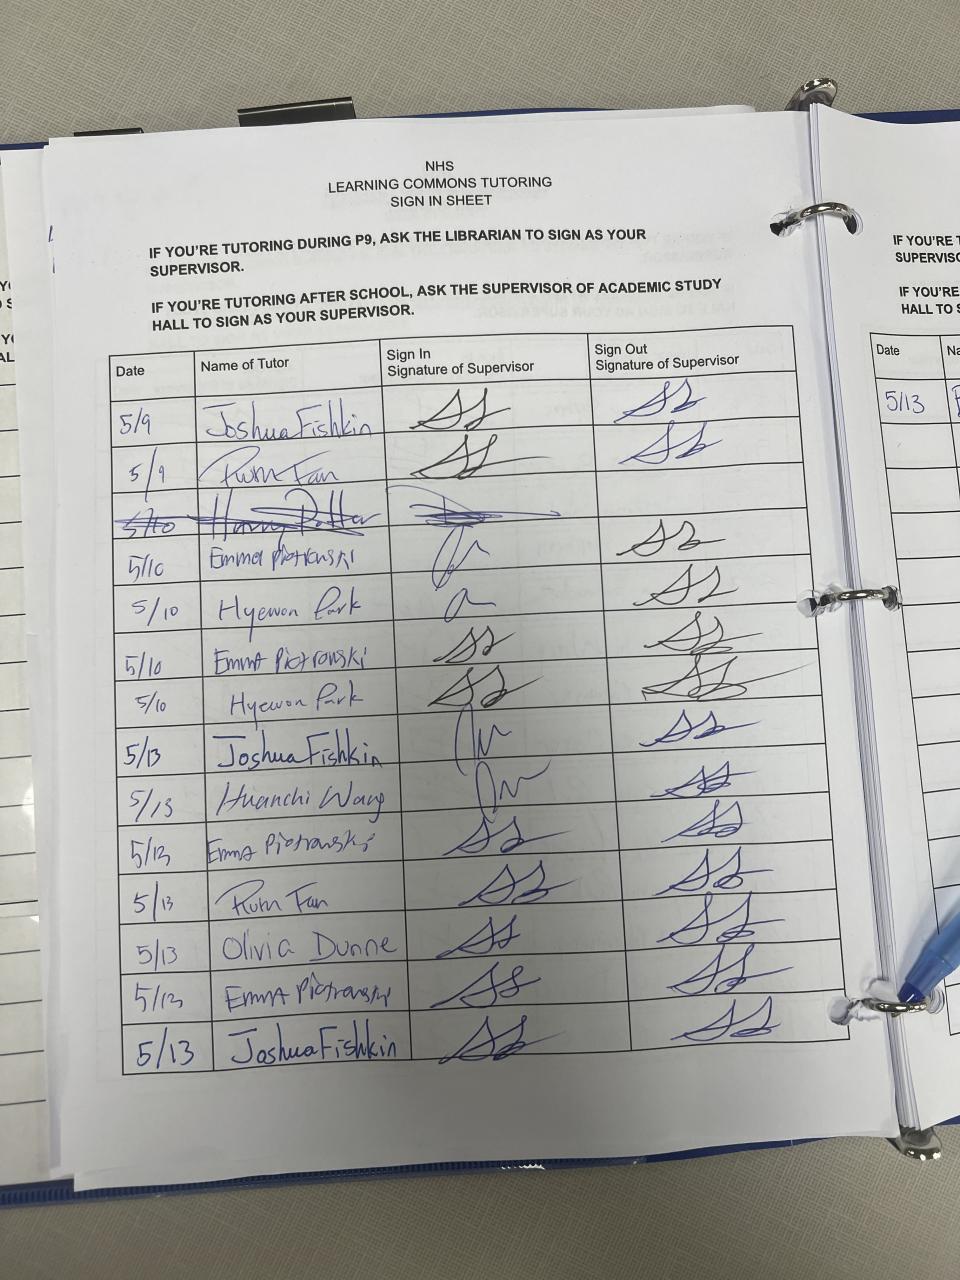 NHS
LEARNING COMMONS TUTORING
SIGN IN SHEET
IF YOU'RE TUTORING DURING P9, ASK THE LIBRARIAN TO SIGN AS YOUR
SUPERVISOR.
IF YOU'RE TUTORING AFTER SCHOOL, ASK THE SUPERVISOR OF ACADEMIC STUDY
HALL TO SIGN AS YOUR SUPERVISOR.
Date Name of Tutor Sign In Signature of Supervisor Sign Out Signature of Supervisor
5/9 Joshua Fishkin
5/9 Fan
5/10 Harry Potter
5/10 Emma Piotrowski
5/10 Hyewon Park
5/10 Emma Piotrowski
5/10 Hyewon Park
5/13 Joshua Fishkin
5/13 Huanchi Wang
5/13 Emma Piotrowski
5/13 Fan
5/13 Olivia Dunne
5/13 Emma Piotrowski
5/13 Joshua Fishkin
IF YOU'RE T
SUPERVISO
IF YOU'RE
HALL TO S
Date Na
5/13